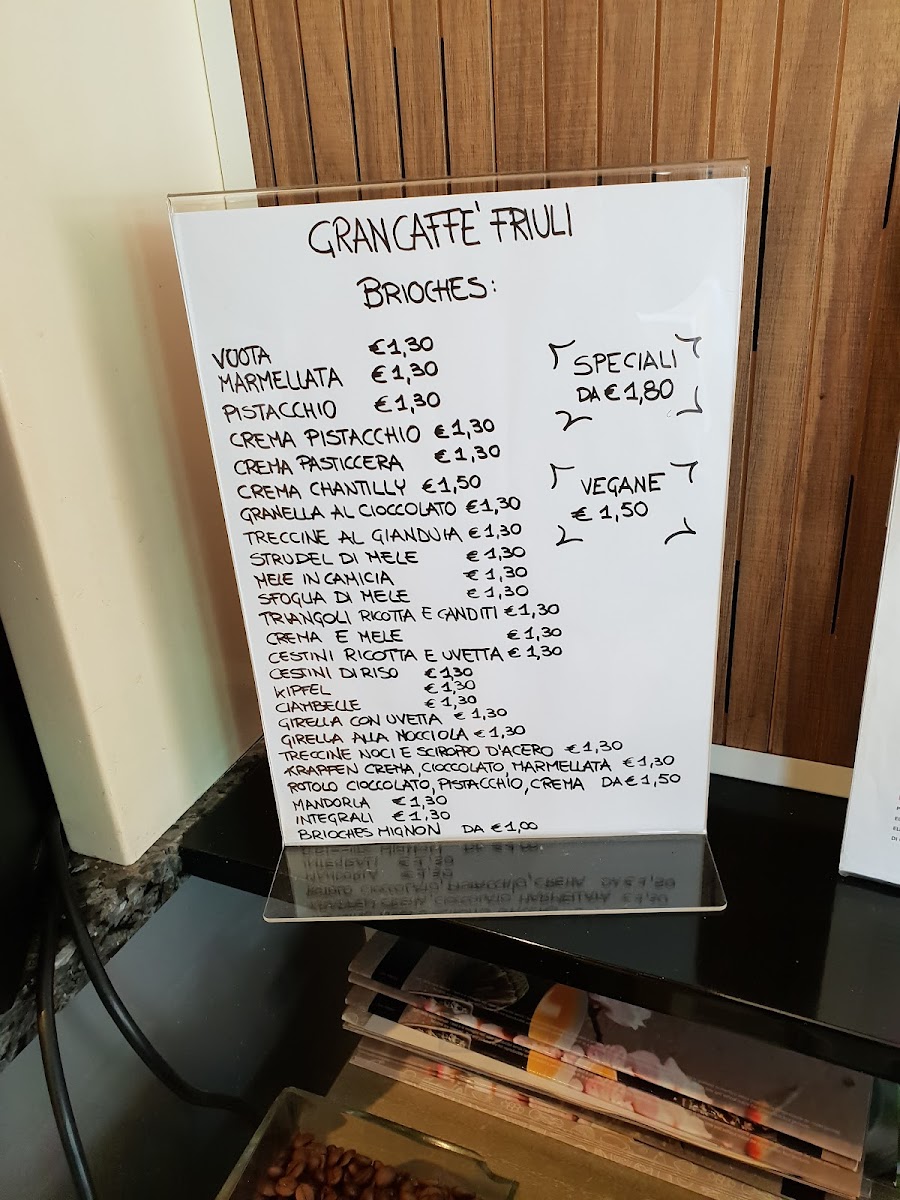 GRANCAFFE' FRIULI
BRIOCHES:
VUOTA €1,30
MARMELLATA €1,30
PISTACCHIO €1,30
CREMA PISTACCHIO €1,30
CREMA PASTICCERA €1,30
CREMA CHANTILLY €1,50
GRANELLA AL CIOCCOLATO €1,30
TRECCINE AL GIANDUIA €1,30
STRUDEL DI MELE €1,30
MELE IN CAMICIA €1,30
SFOGLIA DI MELE €1,30
TRIANGOLI RICOTTA E CANDITI €1,30
CREMA E MELE €1,30
CESTINI RICOTTA E UVETTA €1,30
CESTINI DI RISO €1,30
KIPFEL €1,30
CIAMBELLE €1,30
GIRELLA CON UVETTA €1,30
GIRELLA ALLA NOCCIOLA €1,30
TRECCINE NOCI E SCIROPPO D'ACERO €1,30
KRAPFEN CREMA, CIOCCOLATO, MARMELLATA €1,30
ROTOLO CIOCCOLATO, PISTACCHIO, CREMA DA €1,50
MANDORLA €1,30
INTEGRALI €1,30
BRIOCHES MIGNON DA €1,00
SPECIALI
DA €1,80
VEGANE
€ 1,50